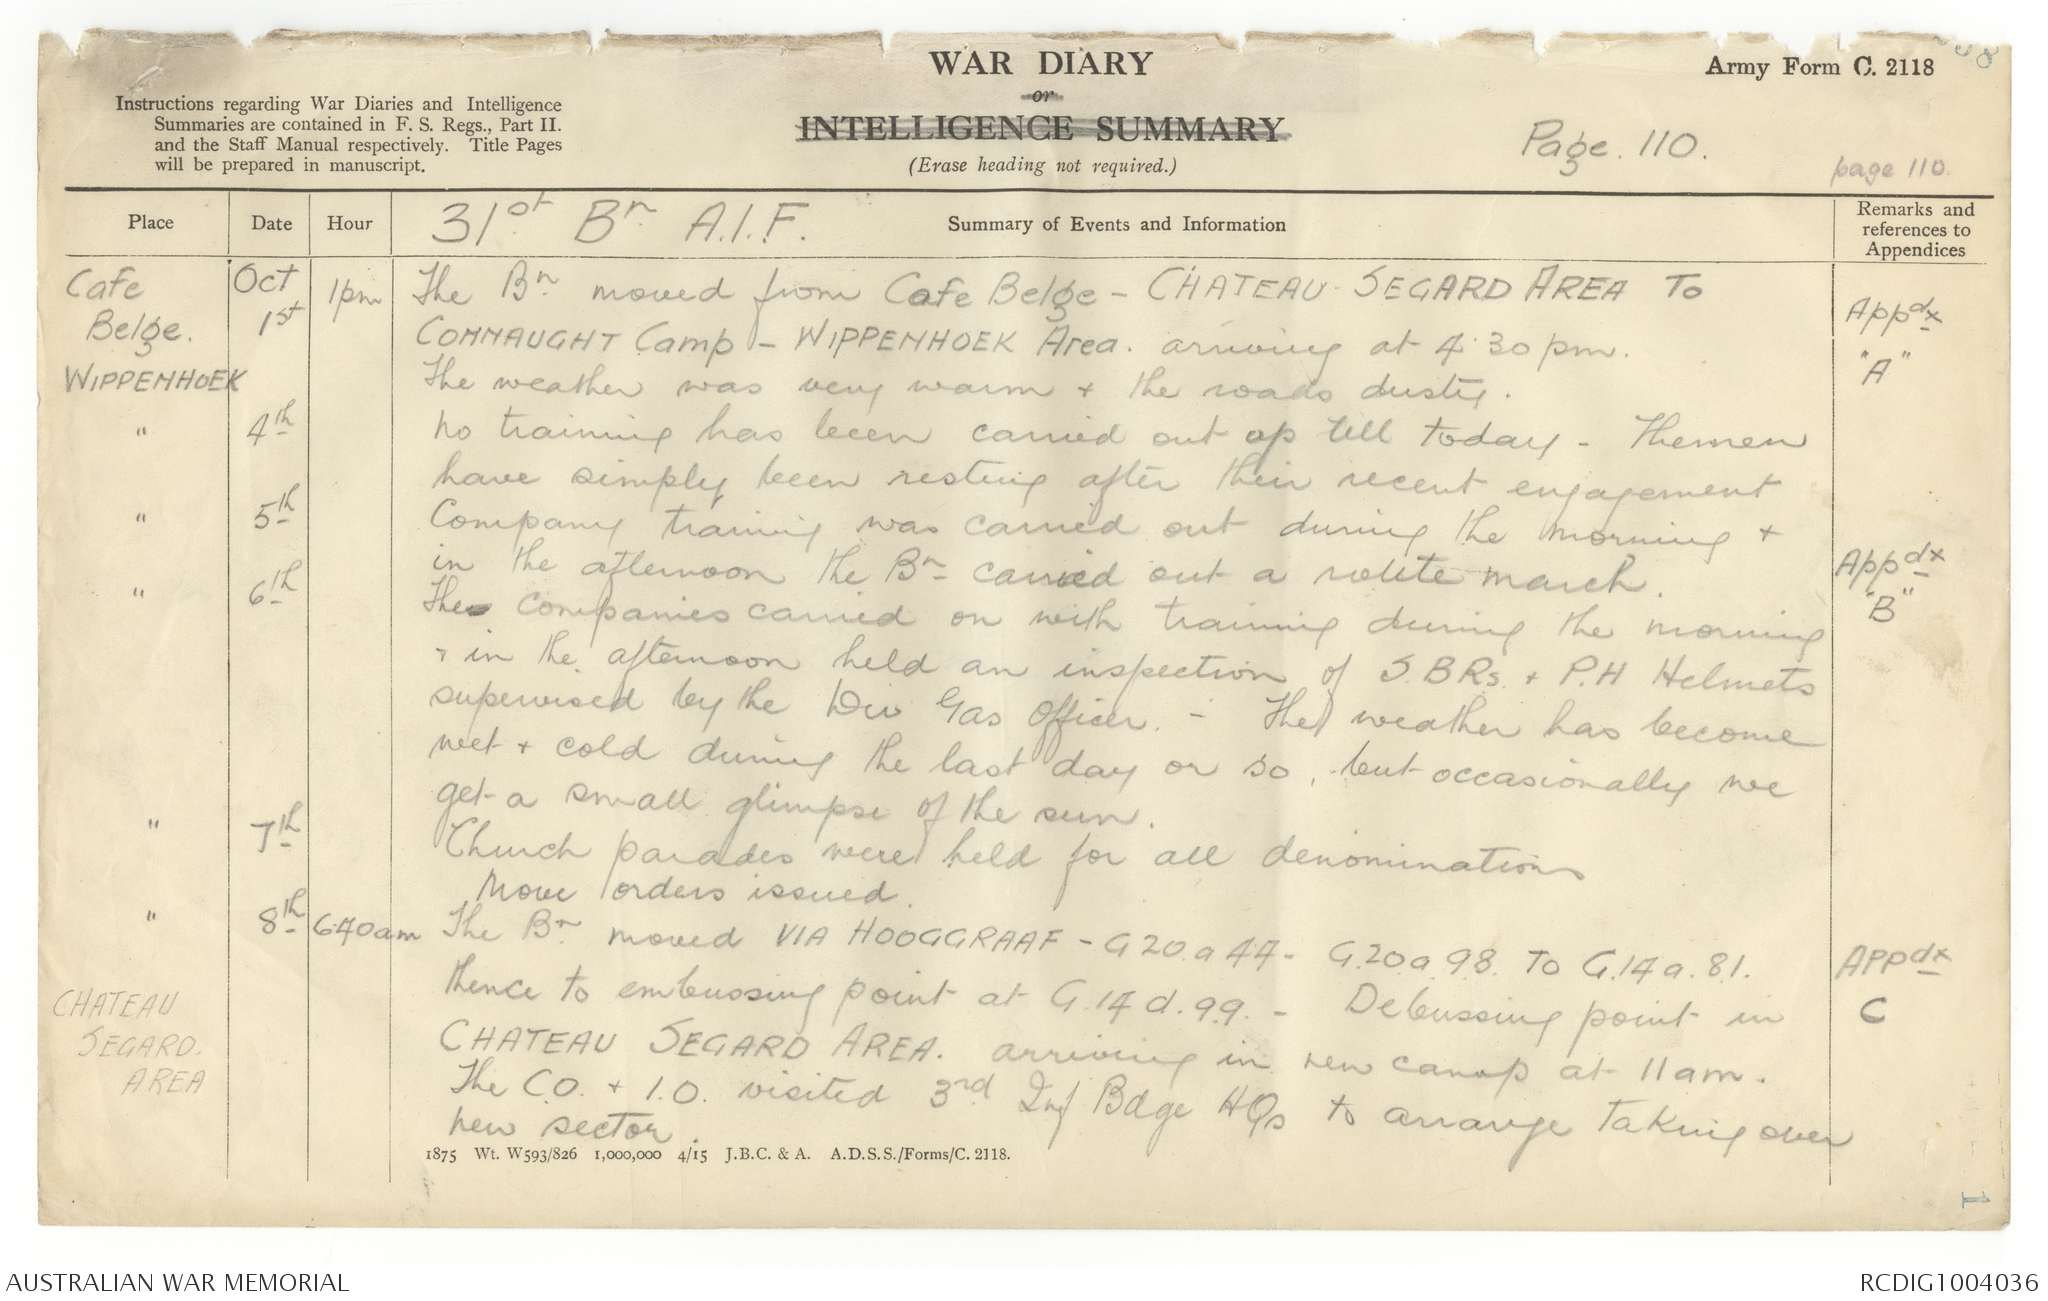 WAR DIARY
or
INTELLIGENCE SUMMARY
(Erase heading not required.)
Army Form C. 2118
Instructions regarding War Diaries and Intelligence
Summaries are contained in F. S. Regs., Part II.
and the Staff Manual respectively. Title Pages
will be prepared in manuscript.
Page. 110.
page 110.
Place Date Hour 31st Bn A.I.F. Summary of Events and Information Remarks and
references to
Appendices
Cafe Oct 1pm The Bn moved from Cafe Belge - CHATEAU SEGARD AREA TO Appdx
Belge. 1st CONNAUGHT Camp - WIPPENHOEK Area. arriving at 4.30pm. "A"
WIPPENHOEK The weather was very warm + the roads dusty.
" 4th No training has been carried out up till today - The men
have simply been resting after their recent engagement
" 5th Company training was carried out during the morning +
in the afternoon the Bn carried out a route march. Appdx
" 6th The companies carried on with training during the morning "B"
+ in the afternoon held an inspection of S.B.Rs. + P.H Helmets
supervised by the Div Gas Officer. - The weather has become
wet + cold during the last day or so, but occasionally we
get a small glimpse of the sun.
" 7th Church parades were held for all denominations
Move orders issued.
" 8th 6.40am The Bn moved VIA HOOGGRAAF - G20.a 44 - G.20a.98. TO G.14a.81. Appdx
thence to embussing point at G.14d.99. - Debussing point in C
CHATEAU CHATEAU SEGARD AREA. arriving in new camp at 11am.
SEGARD. The C.O. + I.O. visited 3rd Inf Bdge HQs to arrange taking over
AREA new sector.
1875 Wt. W593/826 1,000,000 4/15 J.B.C. & A. A.D.S.S./Forms/C. 2118.
1
AUSTRALIAN WAR MEMORIAL
RCDIG1004036